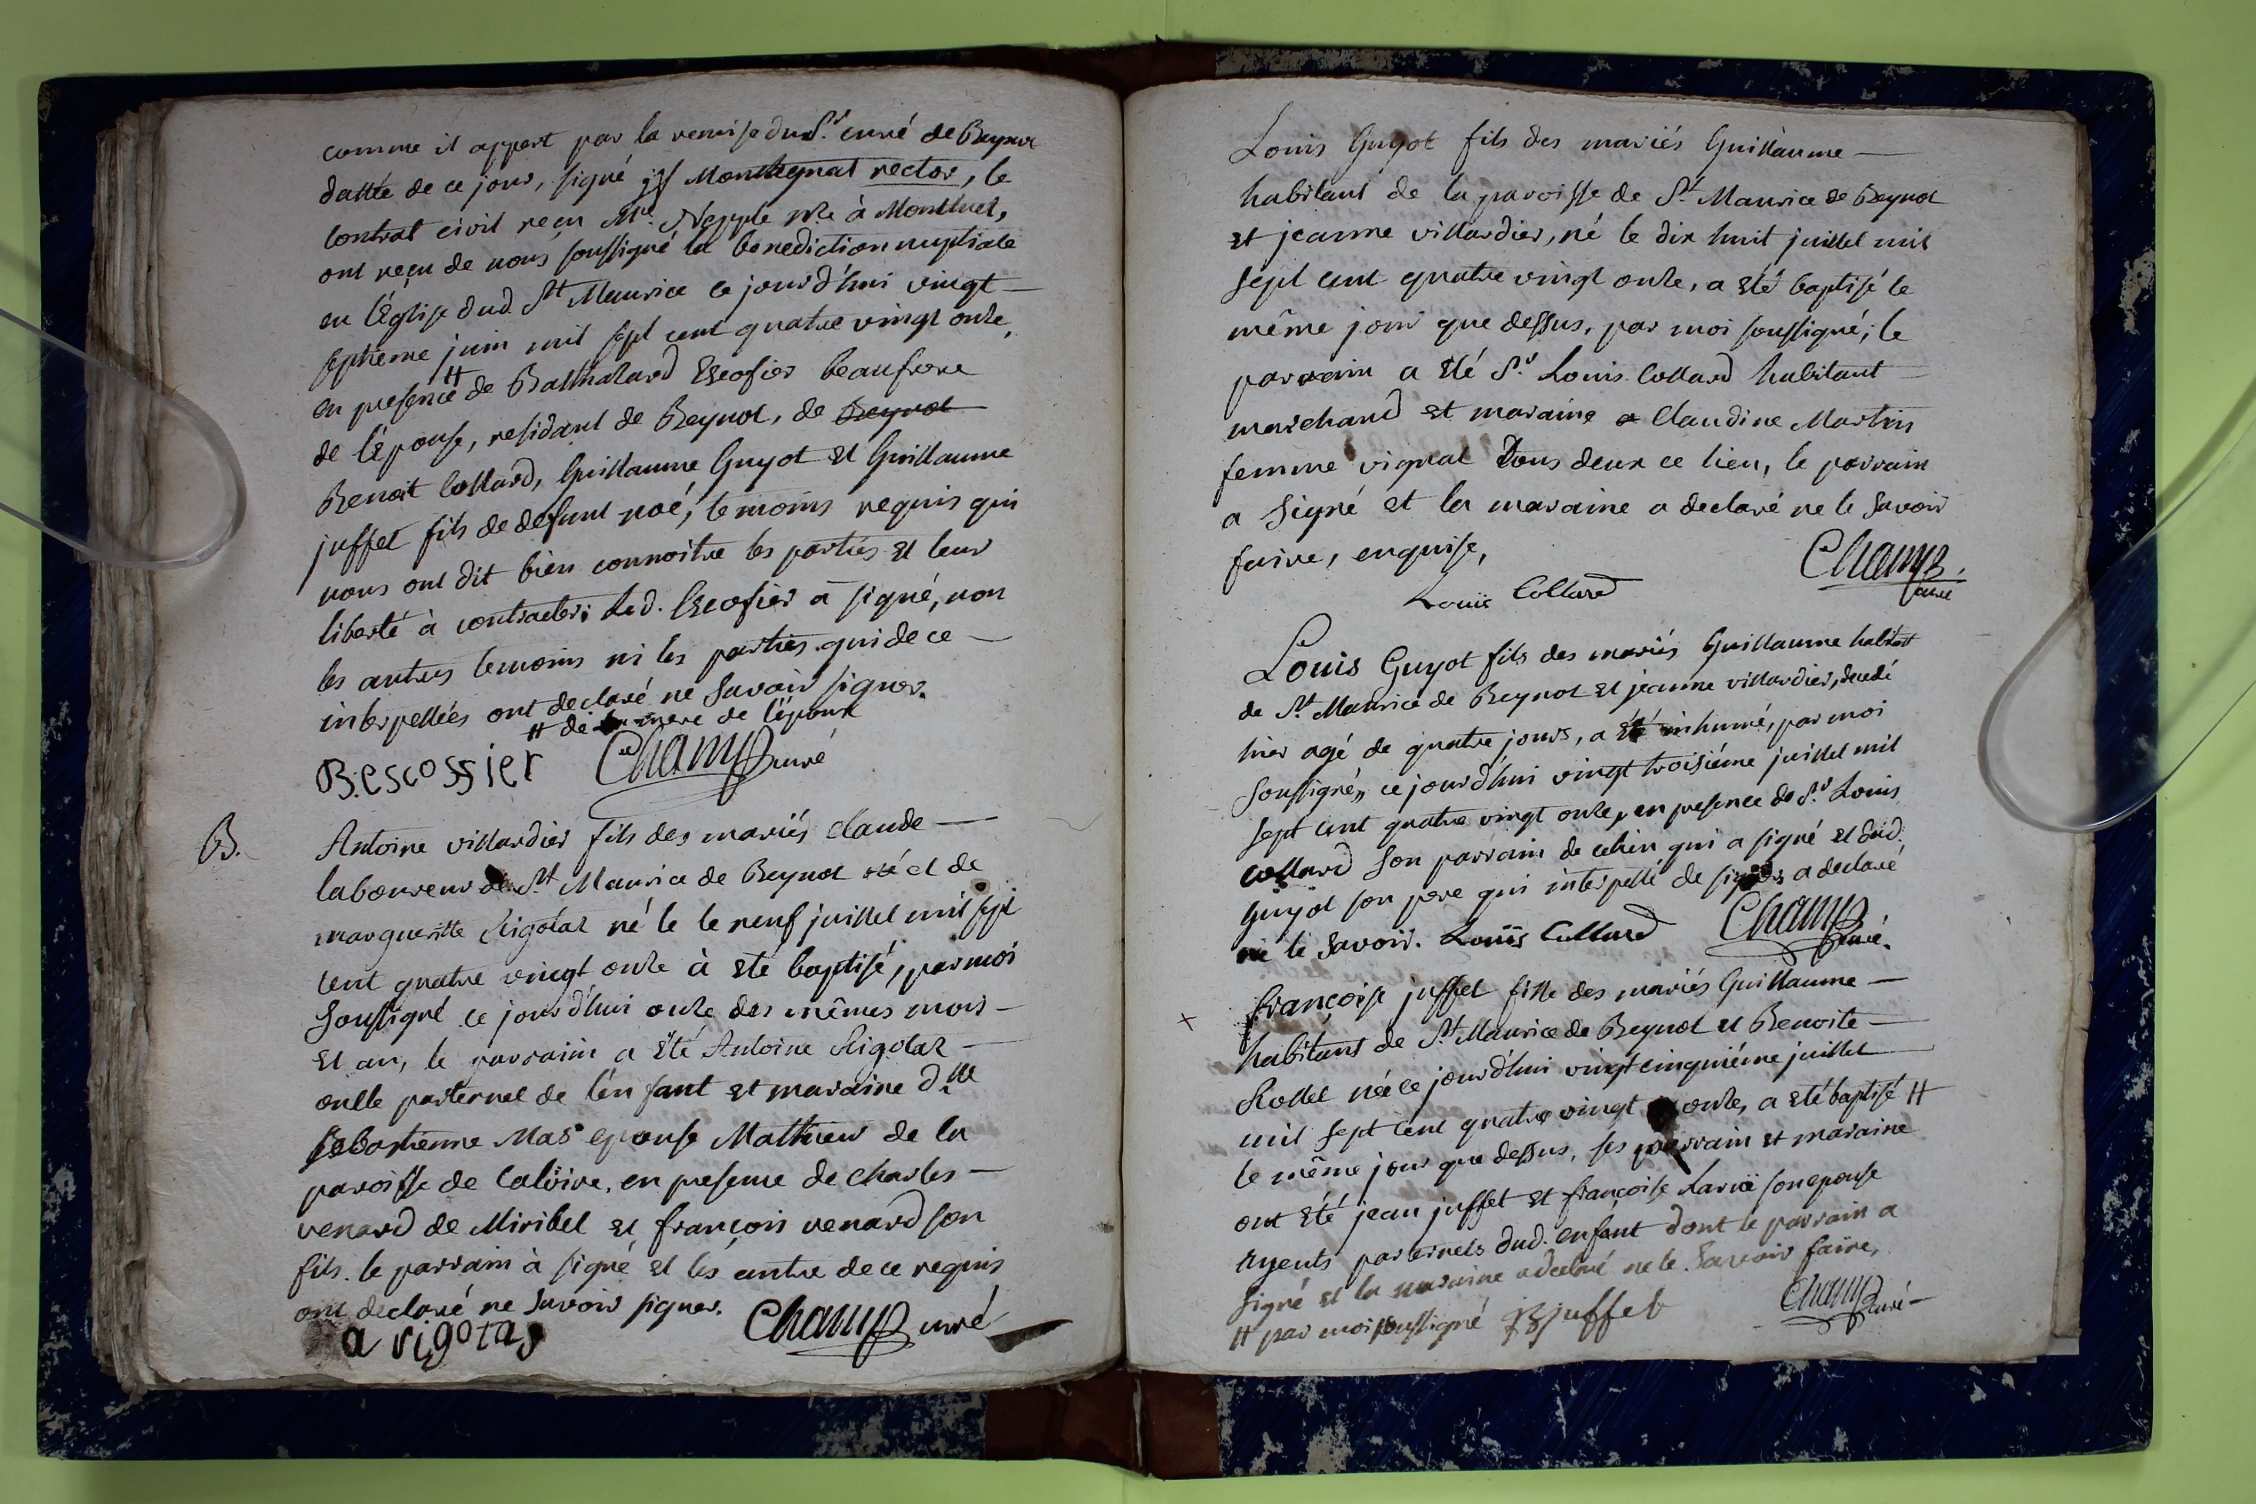 comme il appert par la remise dud S.r curé de Beynot
dattée de ce jour, signé js Monthegnat rector, le
contrat civil reçu M.e Nepple nre à Montluel,
ont reçu de nous soussigné la benediction nuptiale
en l'Eglise dud. St Maurice ce jourd'hui vingt
septieme juin mil sept cent quatre vingt onze,
en presence # de Balthazard Escofier beaufrere
de l'épouse, residant de Beynot, de Beynot
Benoit Collard, Guillaume Guyot et Guillaume
juffet fils de defunt noé, temoins requis qui
nous ont dit bien connoitre les parties et leur
liberté à contracter; Led. Escofier a signé, non
les autres temoins ni les parties qui de ce
interpellées ont declaré ne savoir signer.
# de la mere de l'époux
B. escossier Champ curé
B.
Antoine villardier fils des mariés claude
laboureur de St Maurice de Beynot et de
marguerite Rigolaz né le le neuf juillet mil sept
cent quatre vingt onze à eté baptisé, par moi
soussigné ce jourd'hui onze des mêmes mois
et an, le parrain a été Antoine Rigolaz
oncle paternel de l'enfant et maraine d.lle
sebastienne Mas epouse Mathieu de la
paroisse de Caluire, en presence de charles
venard de Miribel et françois venard son
fils. le parrain à signé et les autre de ce requis
ont declaré ne savoir signer. Champ curé
a rigotas
Louis Guyot fils des mariés Guillaume
habitant de la paroisse de St Maurice de Beynot
et jeanne villardier, né le dix huit juillet mil
sept cent quatre vingt onze, a eté baptisé le
même jour que dessus, par moi soussigné; le
parrain a eté S.r Louis Collard habitant
marchand et maraine a Claudine Martin
femme vignat tous deux ce lieu, le parrain
a signé et la maraine a declaré ne le savoir
faire, enquise,
Louis Collard Champ
curé
Louis Guyot fils des mariés Guillaume habitant
de St Maurice de Beynot et jeanne villardier, decedé
hier agé de quatre jours, a été inhumé, par moi
soussigné, ce jourd'hui vingt troisiéme juillet mil
sept cent quatre vingt onze, en presence de S.r Louis
collard son parrain de celieu qui a signé et dud.
Guyot son pere qui interpellé de signer a declaré
ne le savoir. Louis Collard Champ curé.
x
françoise juffet fille des mariés Guillaume
habitant de St Maurice de Beynot et Benoite
Rollet née ce jourd'hui vingt cinquiéme juillet
mil sept cent quatre vingt onze, a eté baptisé #
le même jour que dessus, ses parrain et maraine
ont eté jean juffet et françoise son epouse
ayents paternels dud. enfant dont le parrain a
signé et la maraine a declaré ne le savoir faire,
# par moi soussigné juffet Champ curé